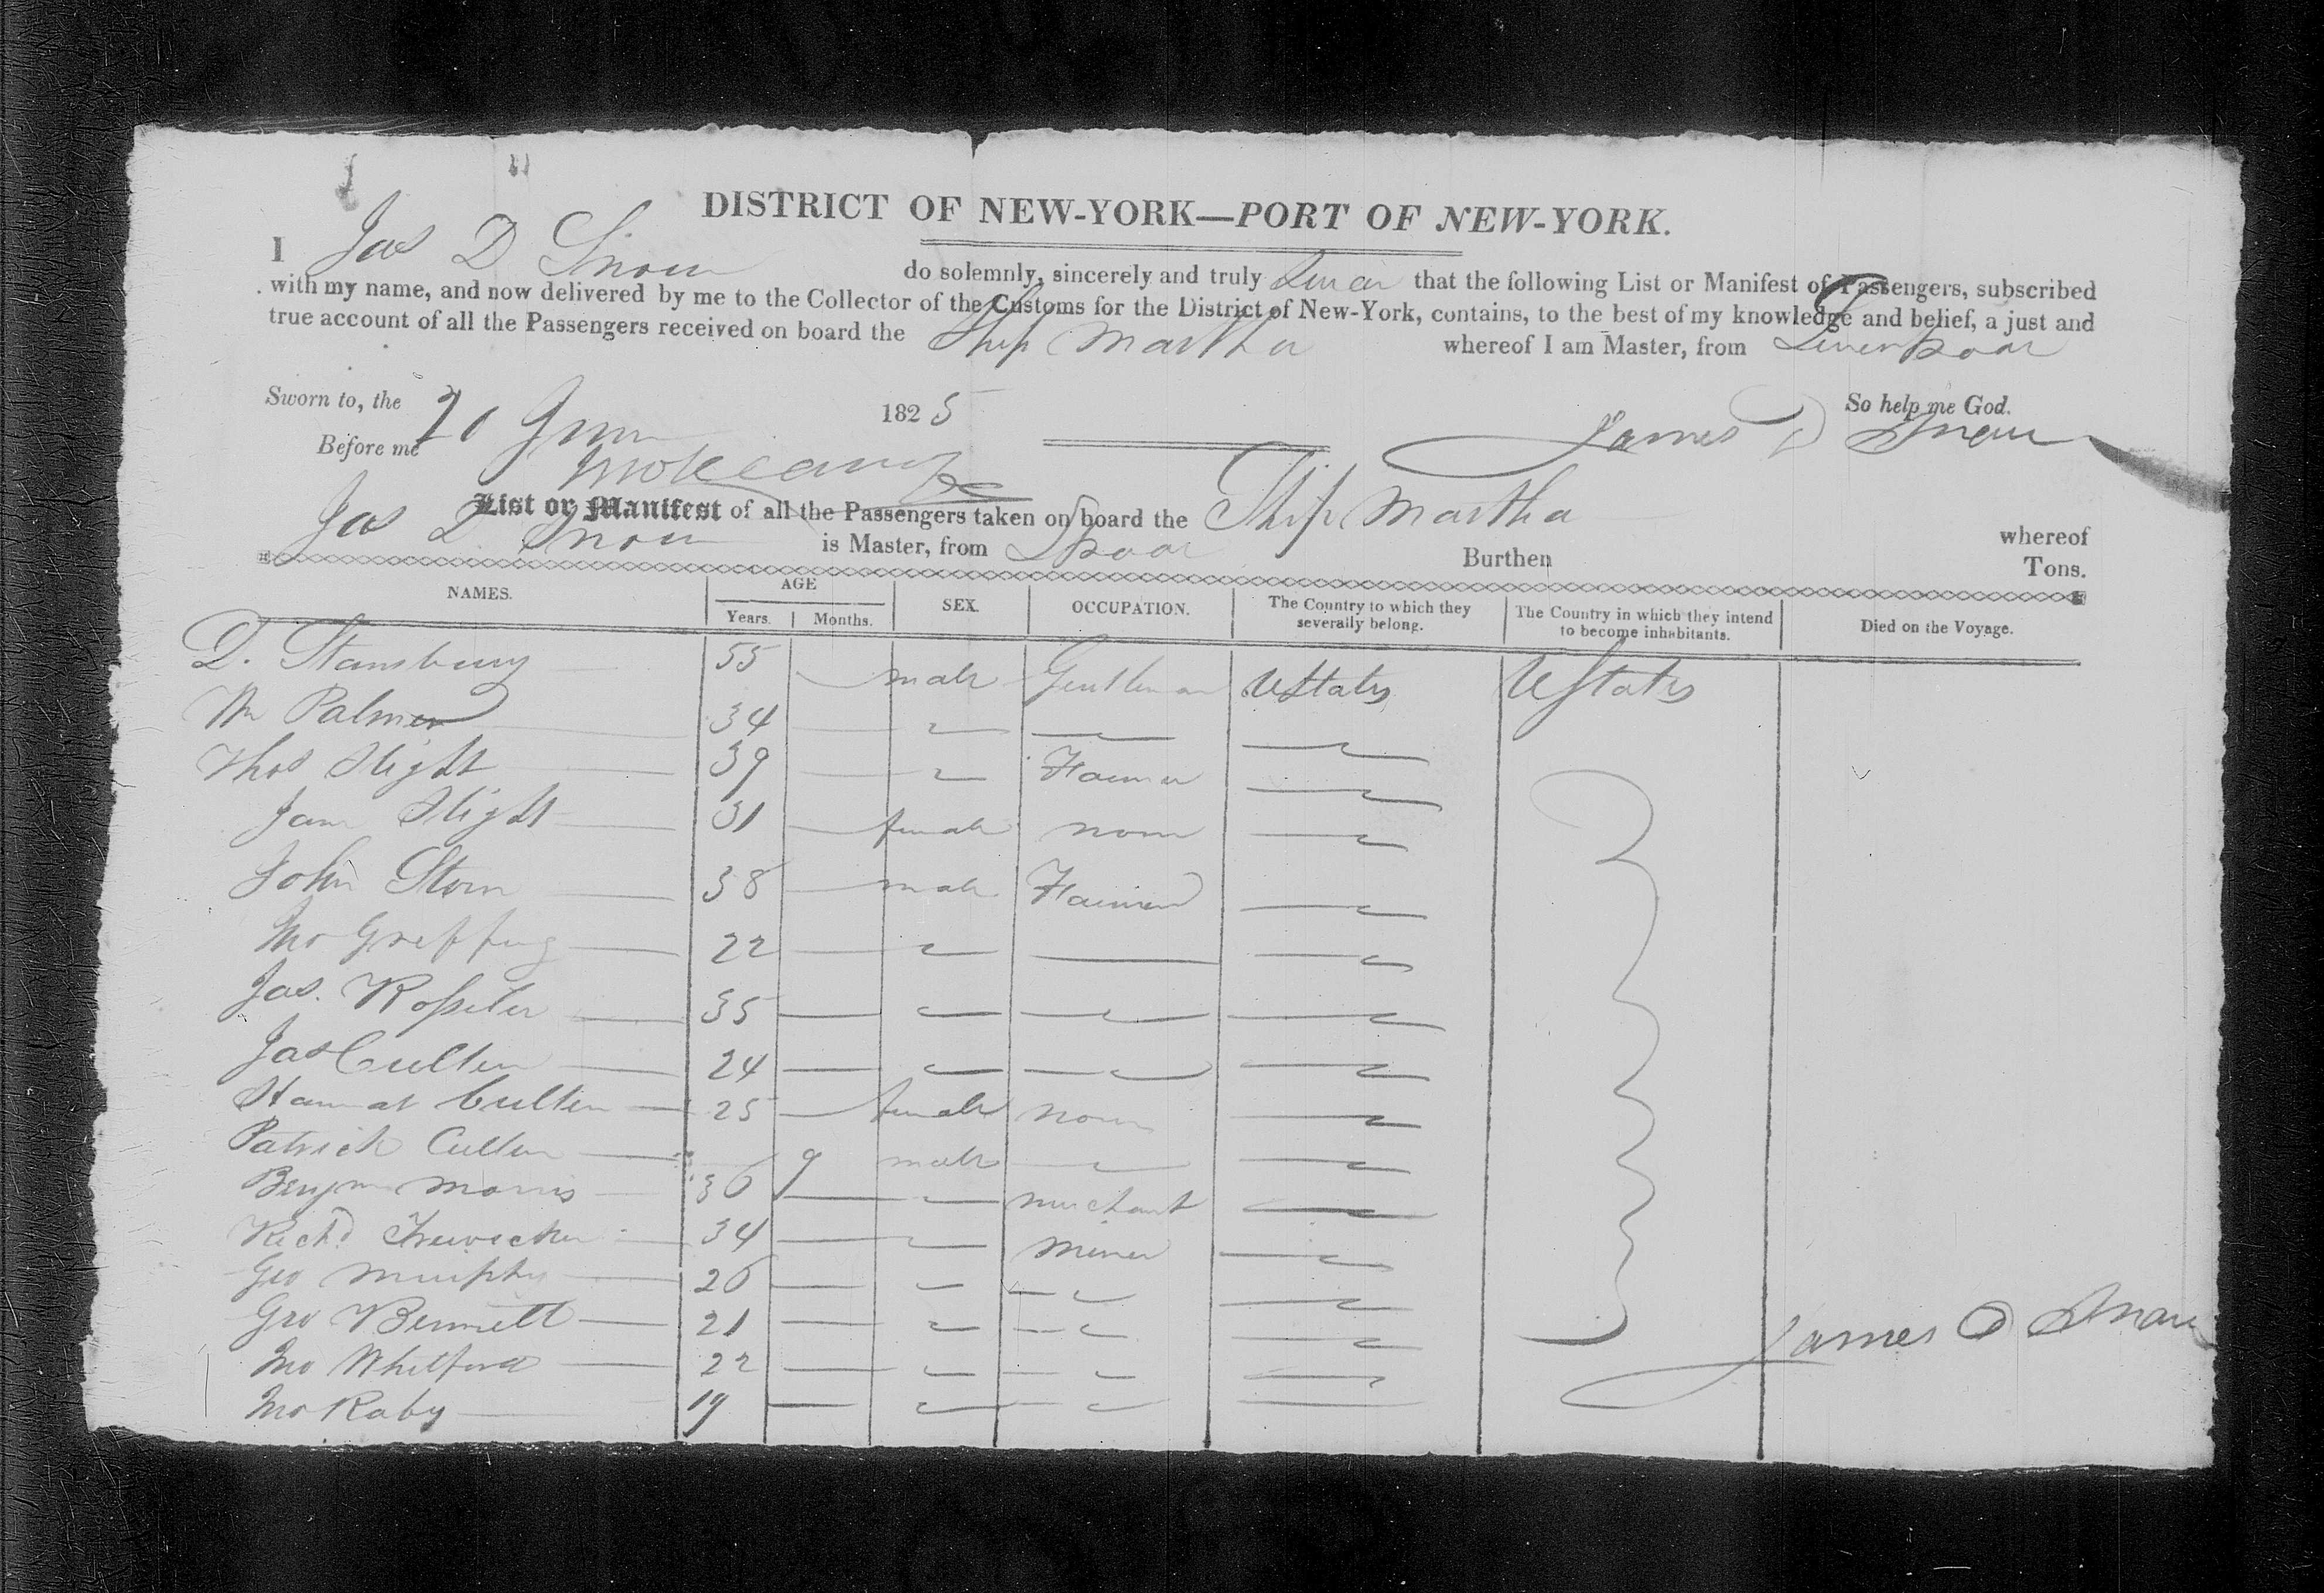 DISTRICT OF NEW-YORK—PORT OF NEW-YORK.
I Jas D Snow do solemnly, sincerely and truly Swear that the following List or Manifest of Passengers, subscribed
with my name, and now delivered by me to the Collector of the Customs for the District of New-York, contains, to the best of my knowledge and belief, a just and
true account of all the Passengers received on board the Ship Martha whereof I am Master, from Liverpool
So help me God.
Sworn to, the 20 June 1825
James D Snow
Before me
List or Manifest of all the Passengers taken on board the Ship Martha whereof
Jas D Snow is Master, from Lpool Burthen Tons.
NAMES. AGE SEX. OCCUPATION. The Country to which they severally belong. The Country in which they intend to become inhabitants. Died on the Voyage.
Years. Months.
D. Stansbury 55 male Gentleman UStates UStates
Wm Palmer 34
Thos Slight 39 Farmer
Jane Slight 31 female none
John Storn 38 male Farmer
Jno Greffing 22
Jas. Rossiter 35
Jas Cullen 24
Hannah Cullen 25 female none
Patrick Cullen 9 male
Benjm Morris 36 merchant
Richd 34 miner
Geo Murphy 26
Geo Bennett 21
Jno Whitford 22
Jno Raby 19
James D Snow